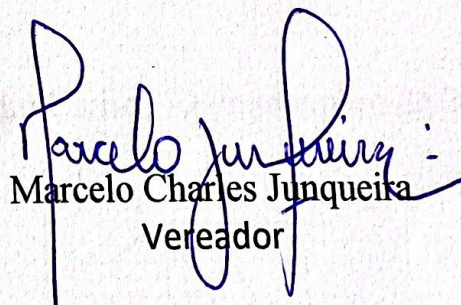 Marcelo Junqueira
Marcelo Charles Junqueira
Vereador